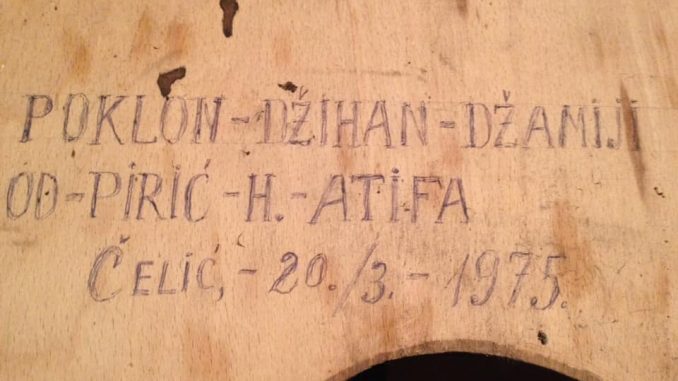 POKLON-DŽIHAN-DŽAMIJI
OD-PIRIĆ-H.-ATIFA
ČELIĆ,-20./3.-1975.